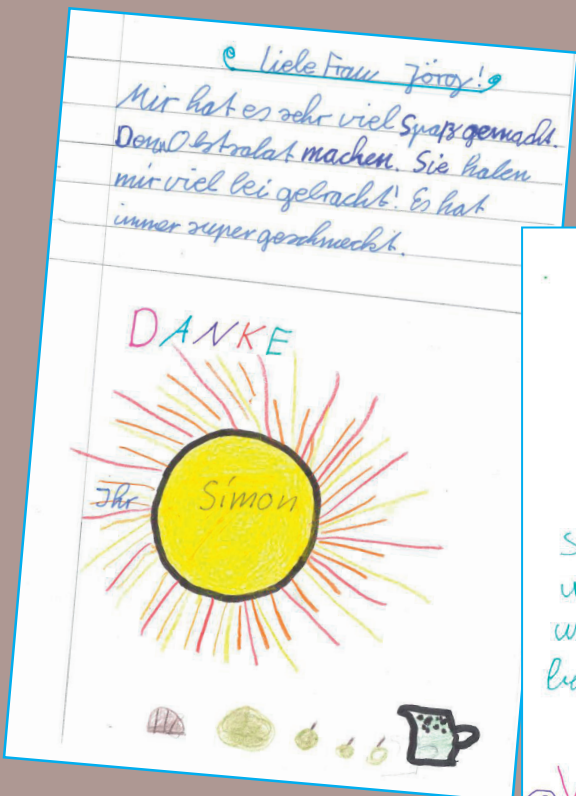 Liebe Frau Jörg!
Mir hat es sehr viel Spaß gemacht.
Den Obstsalat machen. Sie haben
mir viel bei gebracht! Es hat
immer super geschmeckt.
DANKE
Ihr Simon